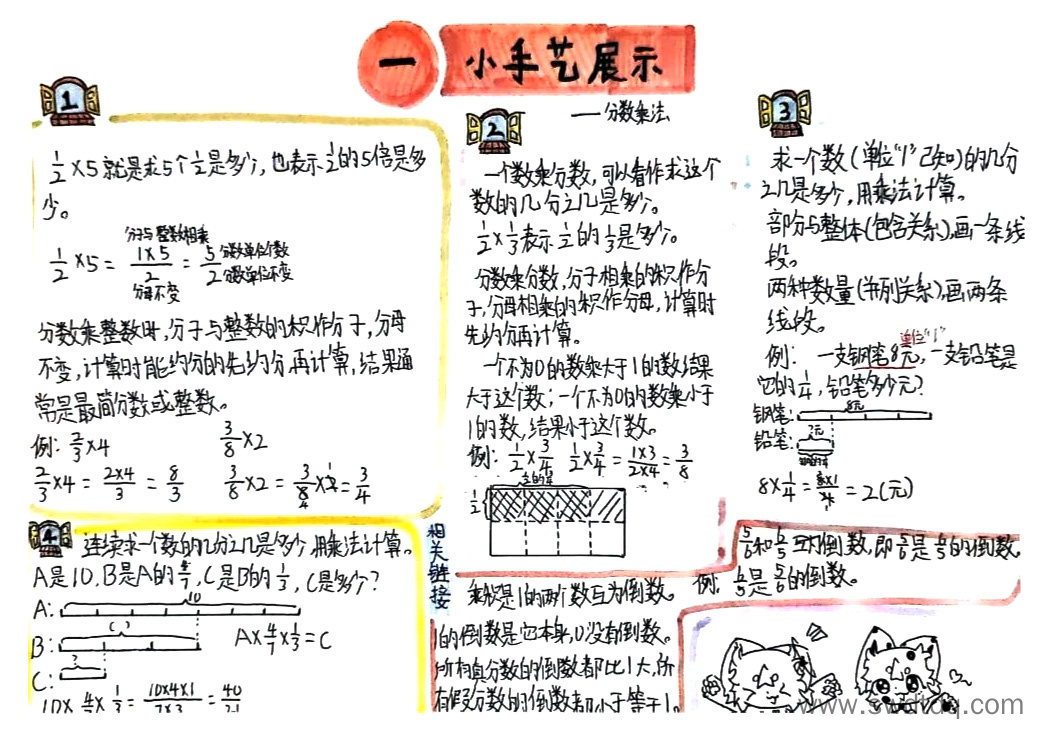 一 小手艺展示
——分数乘法
1
1/2×5就是求5个1/2是多少,也表示1/2的5倍是多
少。
分子与整数相乘
1/2×5=1×5/2=5/2
分数单位个数
分数单位不变
分母不变
分数乘整数时,分子与整数的积作分子,分母
不变,计算时能约分的先约分再计算,结果通
常是最简分数或整数。
例:2/3×4 3/8×2
2/3×4=2×4/3=8/3 3/8×2=3/8×2=3/4
4 1
2
一个数乘分数,可以看作求这个
数的几分之几是多少。
1/2×1/3表示1/2的1/3是多少。
分数乘分数,分子相乘的积作分
子,分母相乘的积作分母,计算时
先约分再计算。
一个不为0的数乘大于1的数结果
大于这个数;一个不为0的数乘小于
1的数,结果小于这个数。
例:1/2×3/4 1/2×3/4=1×3/2×4=3/8
1/2
3
求一个数(单位"1"已知)的几分
之几是多少,用乘法计算。
部分与整体(包含关系),画一条线
段。
两种数量(并列关系),画两条
线段。
单位"1"
例:一支钢笔8元,一支铅笔是
它的1/4,铅笔多少元?
钢笔: 8元
铅笔: ?元
8×1/4=8×1/4=2(元)
4
连续求一个数的几分之几是多少,用乘法计算。
A是10,B是A的4/7,C是B的1/3,C是多少?
10
A:
B:
A×4/7×1/3=C
C: ?
10×4/7×1/3=10×4×1/7×3=40/21
相关链接
乘积是1的两个数互为倒数。
1的倒数是它本身,0没有倒数。
所有真分数的倒数都比1大,所
有假分数的倒数都小于等于1。
5/6和6/5互为倒数,即5/6是6/5的倒数,
例:6/5是5/6的倒数。